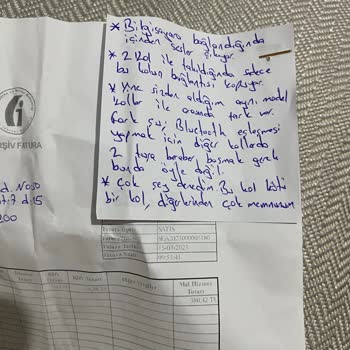 * Bilgisayara bağlandığında
içinden sesler çıkıyor.
* 2 kol ile takıldığında sadece
bu kolun bağlantısı kopuyor.
* Yine sizden aldığım aynı model
kollar ile arasında fark var.
fark şu; Bluetooth eşleşmesi
yapmak için diğer kollarda
2 tuşa beraber basmak gerek
bunda öyle değil.
* Çok şey denedim Bu kol kötü
bir kol, diğerlerinden çok memnunum
ARŞİV FATURA
d. No:50
d:15
200
SATIS
Fatura No:
Fatura Tarihi:
15-09-2023
Fatura Saati:
09:53:41
KDV Tutarı
Diğer Vergiler
Mal Hizmet
Tutarı
380,42 TL